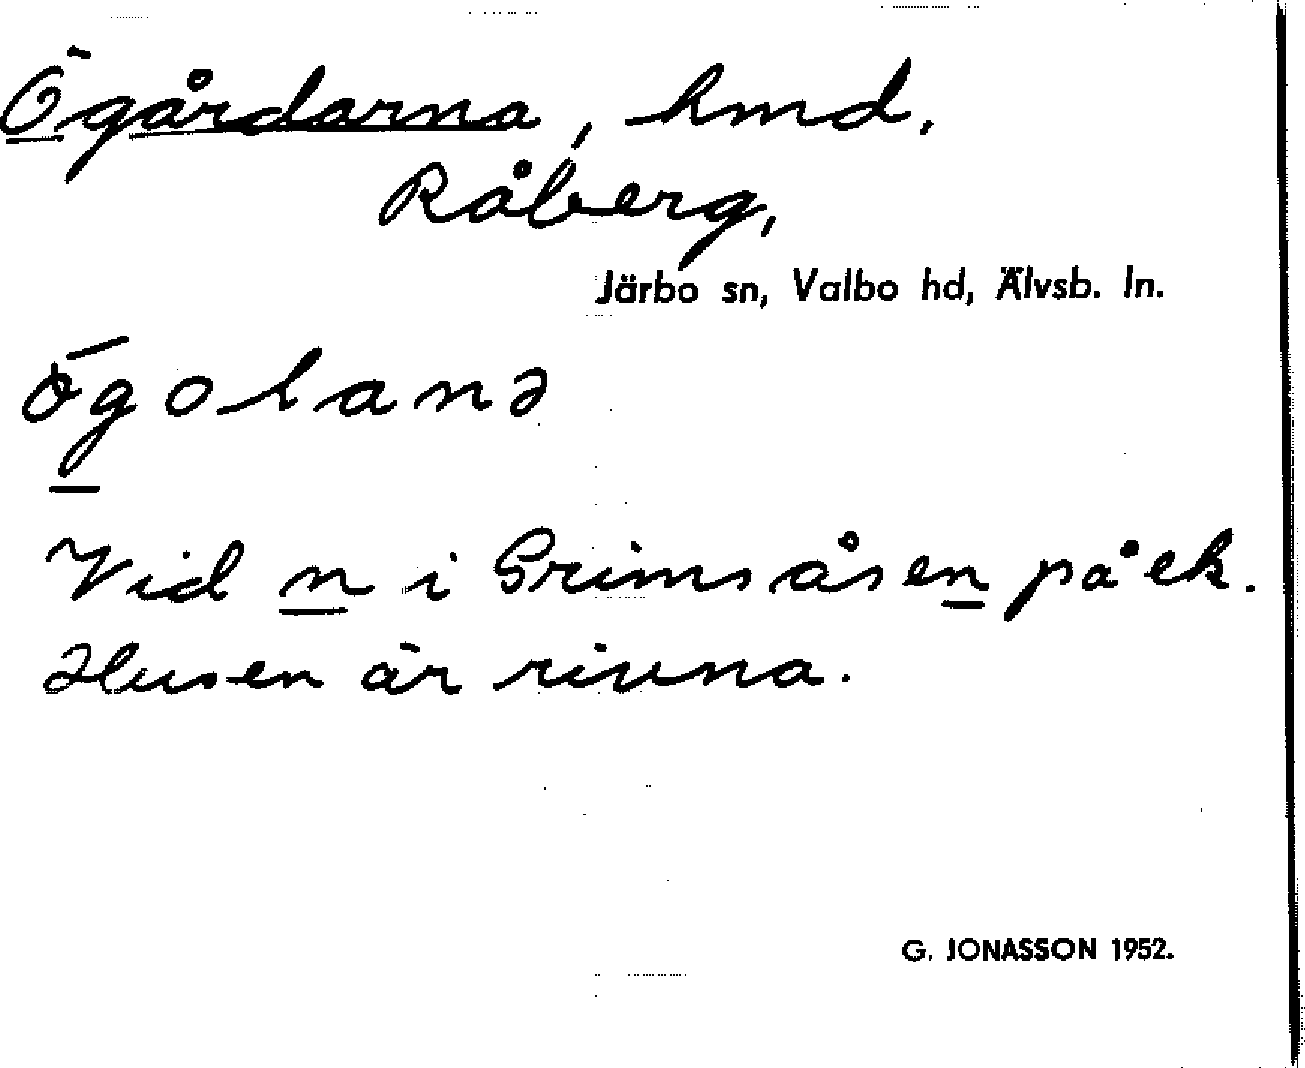 Ögårdarna, hmd,
Råberg,
Järbo sn, Valbo hd, Älvsb. ln.
Vid n i Grimsåsen på ek.
Husen är rivna.
G. JONASSON 1952.